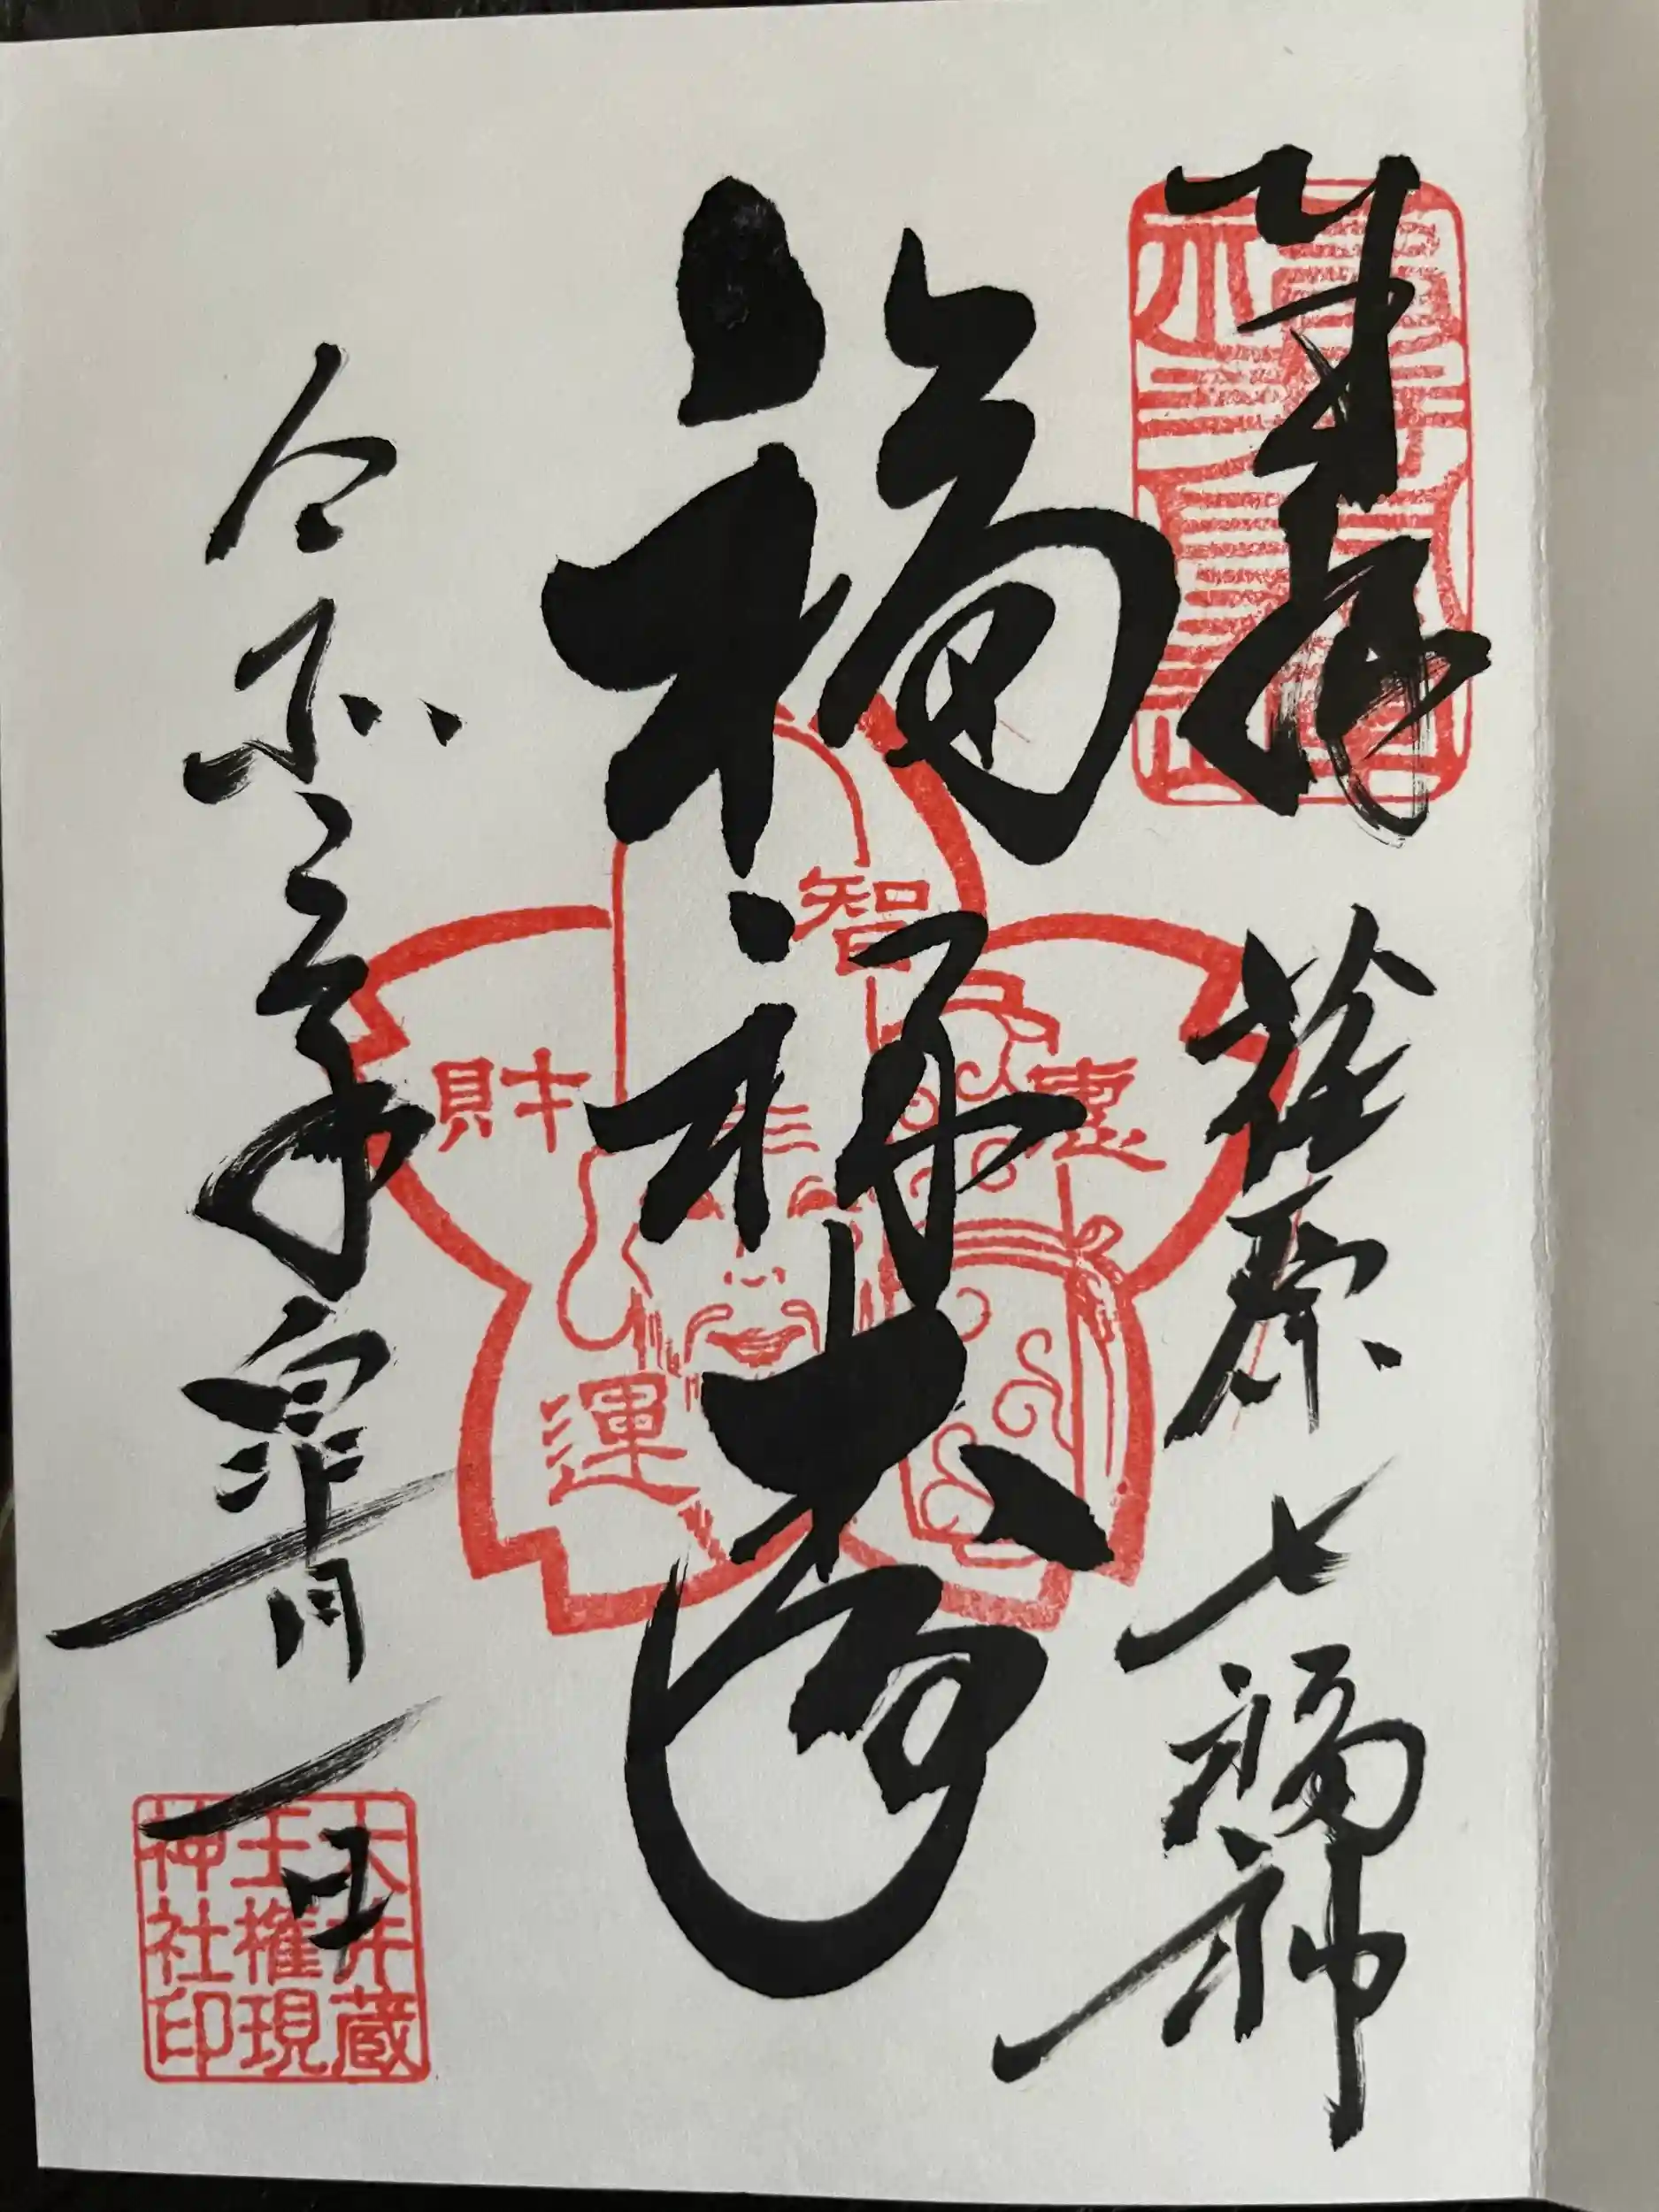 奉拝
荏原七福神
福禄寿
智
恵
財
運
令和
年
月
一日
大井蔵
王権現
神社印